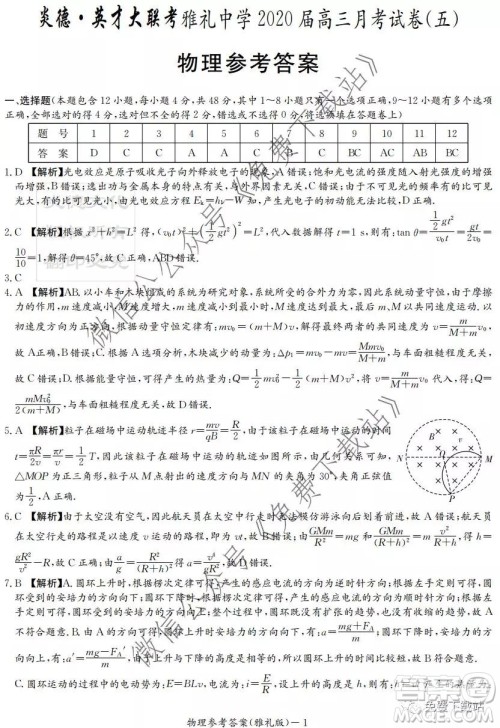 炎德·英才大联考雅礼中学2020届高三月考试卷(五)
物理参考答案
一、选择题(本题包含12小题,每小题4分,共48分,其中1~8小题只有一个选项正确,9~12小题有多个选项
正确,全部选对的得4分,选对但不全的得2分,错选或不选得0分,将选项填涂在答题卷上)
题 号 1 2 3 4 5 6 7 8 9 10 11 12
答 案 D C C A A C B D AC AC BC BC
1. D 【解析】光电效应是原子吸收光子向外释放电子的现象,A错误;饱和光电流的强度随入射光强度的增强
而增强,B错误;逸出功与金属本身的特点有关,与外界因素无关,C错误;由于不可见光的频率有的比可见
光大,有的比可见光小,由光电效应方程Eₖ=hν-W知,产生光电子的初动能无法比较,D正确.
2. C 【解析】根据x²+h²=L²得,(v₀t)²+(½gt²)²=L²,代入数据解得t=1 s,则有:tan θ=(½gt²)/(v₀t)=gt/(2v₀)=
10/10=1,解得θ=45°,故C正确,ABD错误.
3. C
4. A 【解析】AB.以小车和木块组成的系统为研究对象,系统所受的合外力为零,因此系统动量守恒,由于摩擦
力的作用,m速度减小,M速度增大,m速度减小到最小时,M速度达到最大,最后m、M以共同速度运动.以
初速度方向为正方向,根据动量守恒定律有:mv₀=(m+M)v,解得最终两者的共同速度为v=m/(M+m)v₀,
故A正确,B错误;C.根据A选项分析,木块减少的动量为:Δp₁=mv₀-mv=mM/(M+m)v₀,与车面粗糙程度无关,
故C错误;D.根据能量守恒定律可得,产生的热量为:Q=½mv₀²-½(m+M)v²,将v=m/(M+m)v₀代入得:Q=
mMv₀²/2(m+M),与车面粗糙程度无关,故D错误.
5. A 【解析】粒子在磁场中运动轨迹半径r=mv/qB=R/2,故粒子在磁场中运动的时间
t=πR/2v=πr/v=½T,故该粒子在磁场中运动的轨迹如图所示;由几何关系可知,
△MOP为正三角形,粒子从M点射出的速度方向与MN的夹角为30°,夹角正弦值
为½,A正确.
6. C 【解析】由于太空没有空气,因此航天员在太空中行走时无法模仿游泳向后划着前进,故A错误;航天员
在太空行走的路程是以速度v运动的路程,即为vt,故B错误;由GMm/R²=mg和GMm/(R+h)²=mv²/(R+h),得h=
gR²/v²-R,故C正确;由a/g=R²/(R+h)²得a=v⁴/gR²,故D错误.
7. B 【解析】A.圆环上升时,根据楞次定律可得:产生的感应电流的方向为逆时针方向;根据左手定则可得,圆
环受到的安培力的方向向下;圆环下降时,根据楞次定律可得:产生的感应电流的方向为顺时针方向;根据左
手定则可得,圆环受到的安培力的方向向上,所以圆环既没有扩张的趋势,也没有收缩的趋势,故A
不符合题意.B.由于安培力的方向总是与圆环的运动方向相反,所以上升的过程中:a=(mg+F_A)/m,方向向下;下降
向向下;有:a′=(mg-F_A′)/m,
C.圆环运动的速度为v,则产生的电动势为E=BLv,电流为I
微信公众号《免费下载站》
物理参考答案(雅礼版)－1